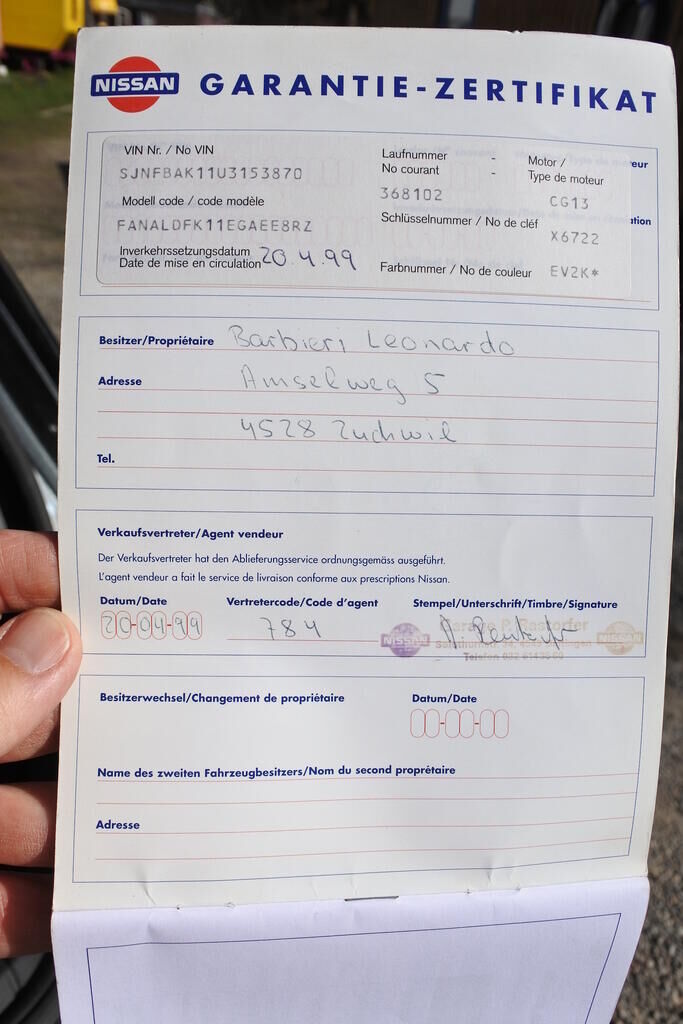 NISSAN GARANTIE-ZERTIFIKAT
VIN Nr. / No VIN
SJNFBAK11U3153870
Laufnummer -
No courant -
368102
Motor /
Type de moteur
CG13
Modell code / code modèle
FANALDFK11EGAEE8RZ
Schlüsselnummer / No de cléf
X6722
Inverkehrssetzungsdatum
Date de mise en circulation 20.4.99
Farbnummer / No de couleur EV2K*
Besitzer/Propriétaire Barbieri Leonardo
Adresse Amselweg 5
4528 Zuchwil
Tel.
Verkaufsvertreter/Agent vendeur
Der Verkaufsvertreter hat den Ablieferungsservice ordnungsgemäss ausgeführt.
L'agent vendeur a fait le service de livraison conforme aux prescriptions Nissan.
Datum/Date Vertretercode/Code d'agent Stempel/Unterschrift/Timbre/Signature
20-04-99 784
NISSAN Garage P. Rastorfer NISSAN
Besitzerwechsel/Changement de propriétaire Datum/Date
00-00-00
Name des zweiten Fahrzeugbesitzers/Nom du second proprétaire
Adresse